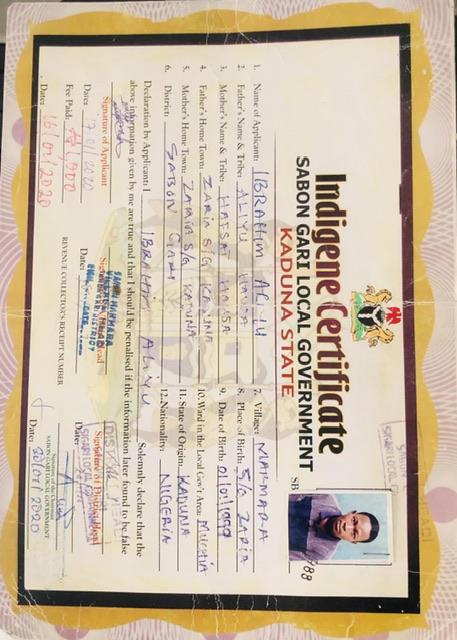 Indigene Certificate
SABON GARI LOCAL GOVERNMENT
KADUNA STATE
SB 988
1. Name of Applicant: IBRAHIM ALIYU
2. Father's Name & Tribe: ALIYU HAUSA
3. Mother's Name & Tribe: HAUSA
4. Father's Home Town: ZARIA S/G KADUNA
5. Mother's Home Town: ZARIA S/G KADUNA
6. District: SABON GARI
7. Village:
8. Place of Birth: S/G ZARIA
9. Date of Birth: 01/01/1999
10. Ward in the Local Gov't Area: MUCHIA
11. State of Origin: KADUNA
12. Nationality: NIGERIA
Declaration by Applicant: I IBRAHIM ALIYU Solemnly declare that the
above information given by me are true and that I should be penalised if the information later found to be false
Signature of Applicant
Date: 17/01/2020
Fee Paid:
Date: 16/01/2020
Date:
REVENUE COLLECTOR'S RECEIPT NUMBER
Signature of District Head
Date:
SABON GARI LOCAL GOVERNMENT
Date: 20/01/2020